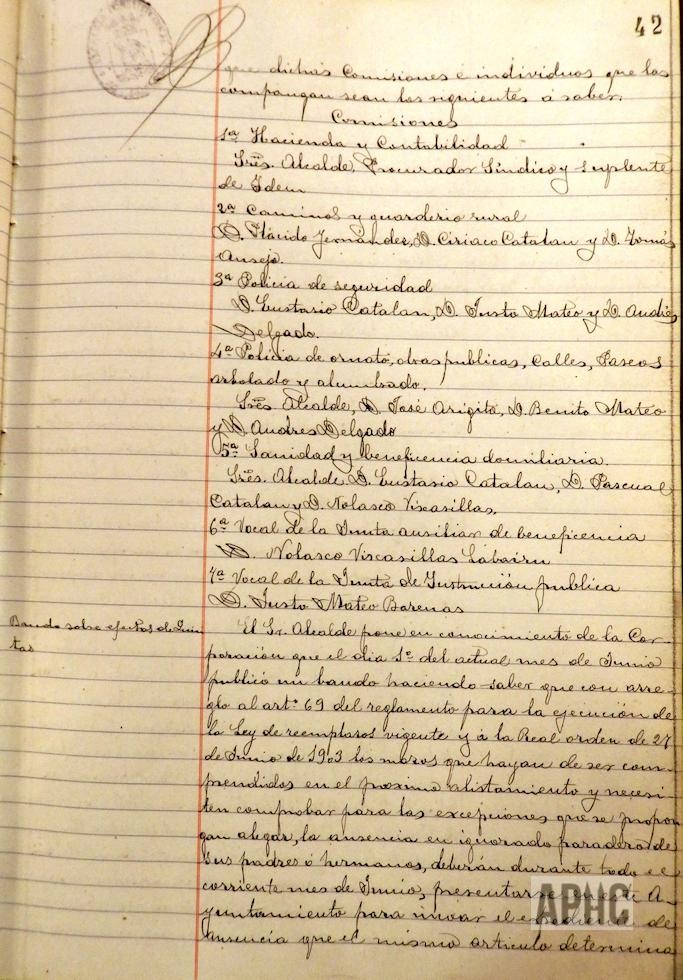 42
que dichas Comisiones é individuos que las
compongan sean los siguientes á saber.
Comisiones
1ª Hacienda y Contabilidad
Sres. Alcalde, Procurador Síndico y suplente
de Idem
2ª Caminos y guarderio rural
D. Plácido Jernandez, D. Ciriaco Catalan y D. Tomás
Ansejo.
3ª Policia de seguridad
D. Eustasio Catalan, D. Justo Mateo y D. Andrés
Delgado.
4ª Policia de ornato, obras publicas, Calles, Paseos
arbolado y alumbrado.
Sres. Alcalde, D. José Arigita, D. Benito Mateo
y D. Andres Delgado
5ª Sanidad y beneficencia domiliaria
Sres. Alcalde D. Eustasio Catalan, D. Pascual
Catalan y D. Nolasco Viscasillas.
6ª Vocal de la Junta ausiliar de beneficencia
D. Nolasco Viscasillas Labairu
7ª Vocal de la Junta de Instrucción publica
D. Justo Mateo Barenas
Bando sobre efectos de Quin
tas
El Sr. Alcalde pone en conocimiento de la Cor-
poración que el dia 1º del actual mes de Junio
publicó un bando haciendo saber que con arre-
glo al artº 69 del reglamento para la ejecución de
la Ley de reemplazos vigente y á la Real orden de 27
de Junio de 1903 los mozos que hayan de ser com-
prendidos en el proximo alistamiento y necesi
ten comprobar para las excepciones que se propon
gan alegar, la ausencia en ignorado paradero de
sus padres ó hermanos, deberán durante todo el
corriente mes de Junio, presentarse en este A-
yuntamiento para incoar el expediente de
ausencia que el mismo articulo determina
APHC